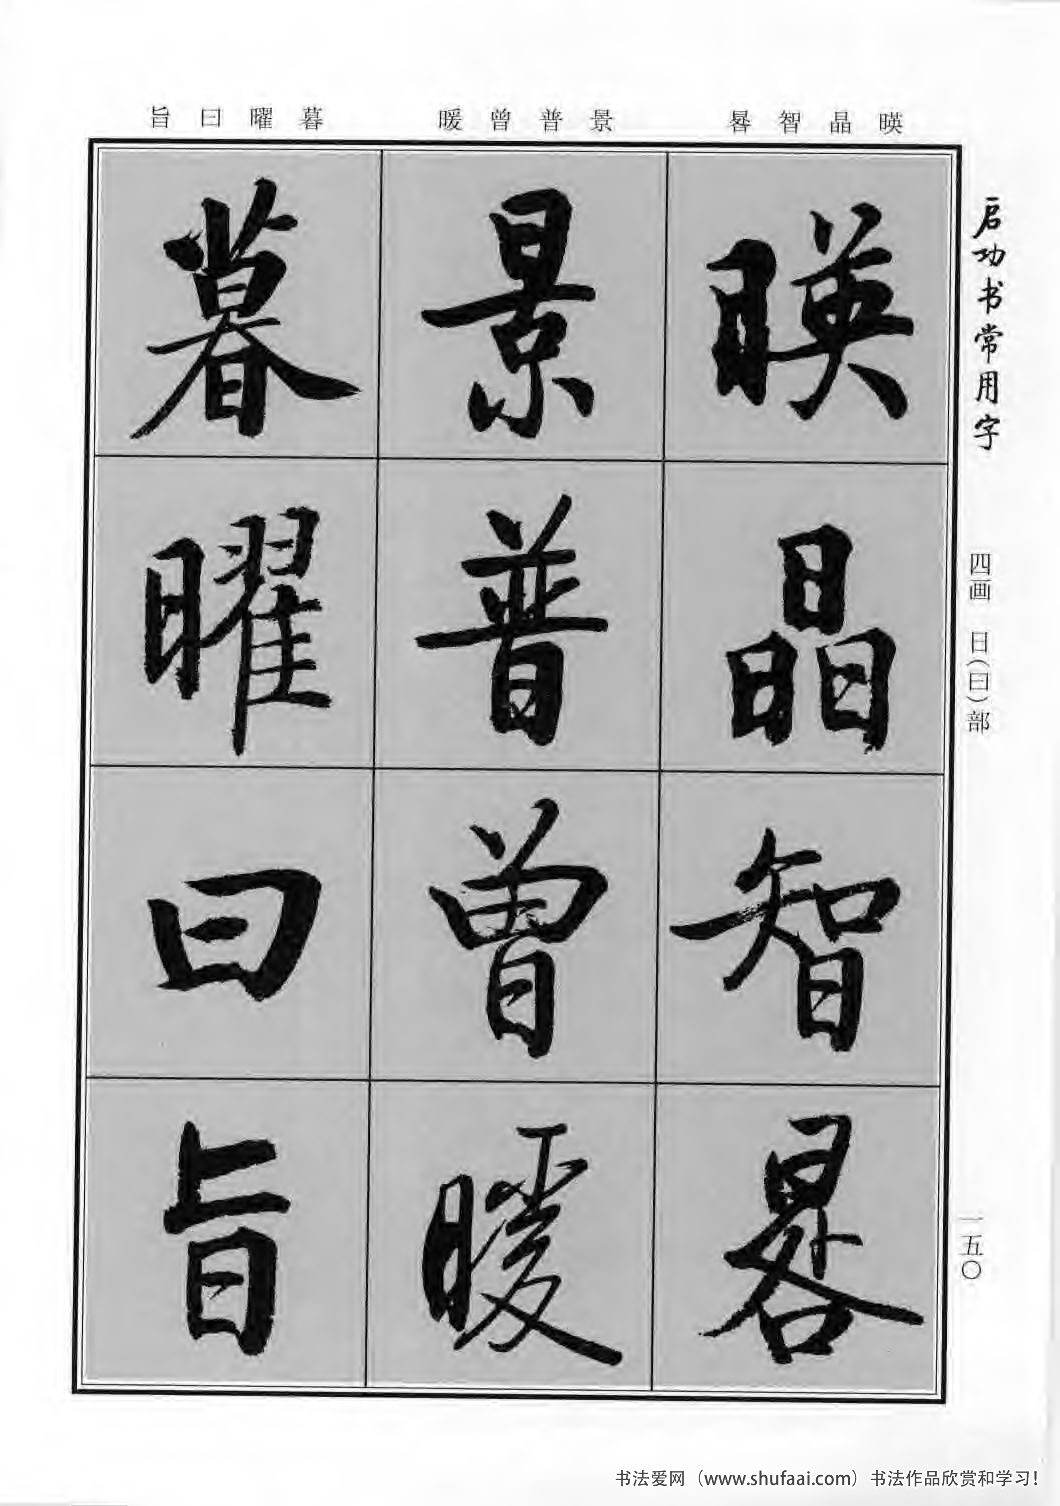 启功书常用字
四画 日(曰)部
一五〇
暎晶智晷
景普曾暖
暮曜曰旨
暎
晶
智
晷
景
普
曾
暖
暮
曜
曰
旨
书法爱网（www.shufaai.com）书法作品欣赏和学习！